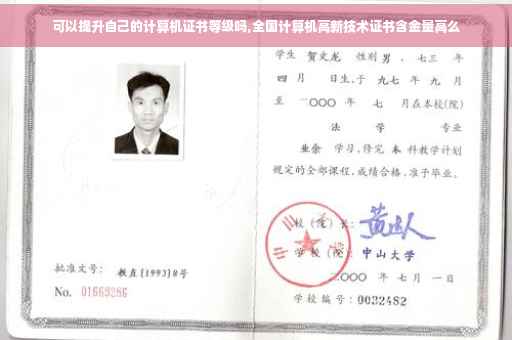 可以提升自己的计算机证书等级吗,全国计算机高新技术证书含金量高么
学生 贺文龙 性别 男 、七三 年
四 月 日生,于 九七 年 九 月
至 二〇〇〇 年 七 月在本校(院)
法 学 专业
业余 学习,修完 本 科教学计划
规定的全部课程,成绩合格,准予毕业。
校(院)长:
学校(院): 中山大学
二〇〇〇 年 七 月 一 日
批准文号: 教直[1993]8号
No. 01669286
学校编号: 0032482